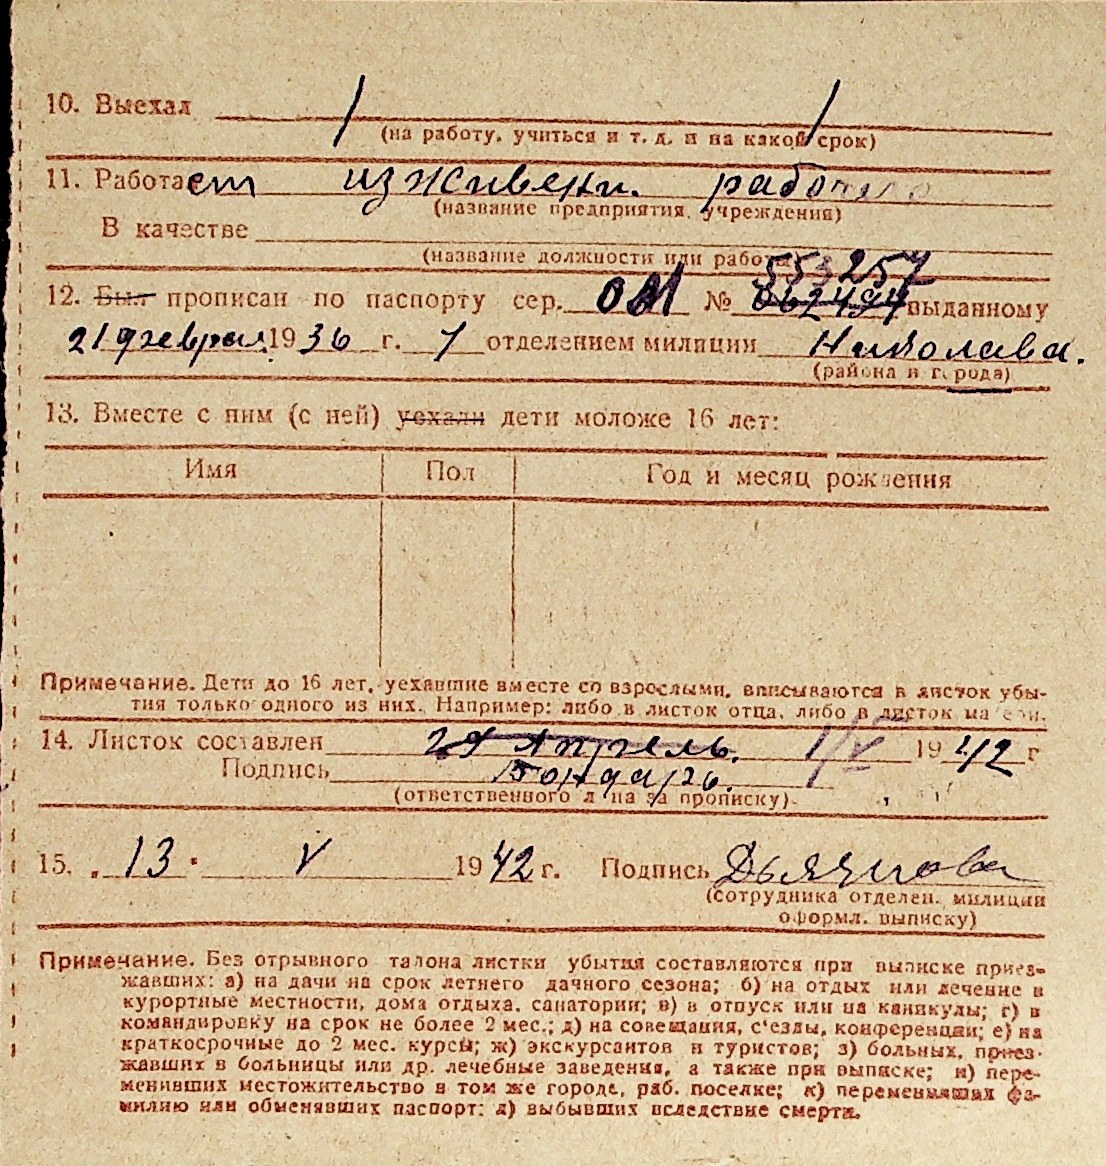 10. Выехал / /
(на работу, учиться и т. д. и на какой срок)
11. Работает изживени. рабочего
(название предприятия, учреждения)
В качестве
(название должности или работы
553257
12. Был прописан по паспорту сер. № 662494 выданному
21 февраля 1936 г. 1 отделением милиции Николаева.
(района и города)
13. Вместе с ним (с ней) уехали дети моложе 16 лет:
Имя Пол Год и месяц рождения
Примечание. Дети до 16 лет, уехавшие вместе со взрослыми, вписываются в листок убы-
тия только одного из них. Например: либо в листок отца, либо в листок матери.
14. Листок составлен 29 Апрель. 1/V 1942 г
Подпись Бондарь.
(ответственного лица за прописку)
15. 13. V 1942 г. Подпись Дьячкова
(сотрудника отделен. милиции
оформл. выписку)
Примечание. Без отрывного талона листки убытия составляются при выписке приез-
жавших: а) на дачи на срок летнего дачного сезона; б) на отдых или лечение в
курортные местности, дома отдыха, санатории; в) в отпуск или на каникулы; г) в
командировку на срок не более 2 мес.; д) на совещания, с'езды, конференции; е) на
краткосрочные до 2 мес. курсы; ж) экскурсантов и туристов; з) больных, приез-
жавших в больницы или др. лечебные заведения, а также при выписке; и) пере-
менивших местожительство в том же городе, раб. поселке; к) переменивших фа-
милию или обменявших паспорт; л) выбывших вследствие смерти.